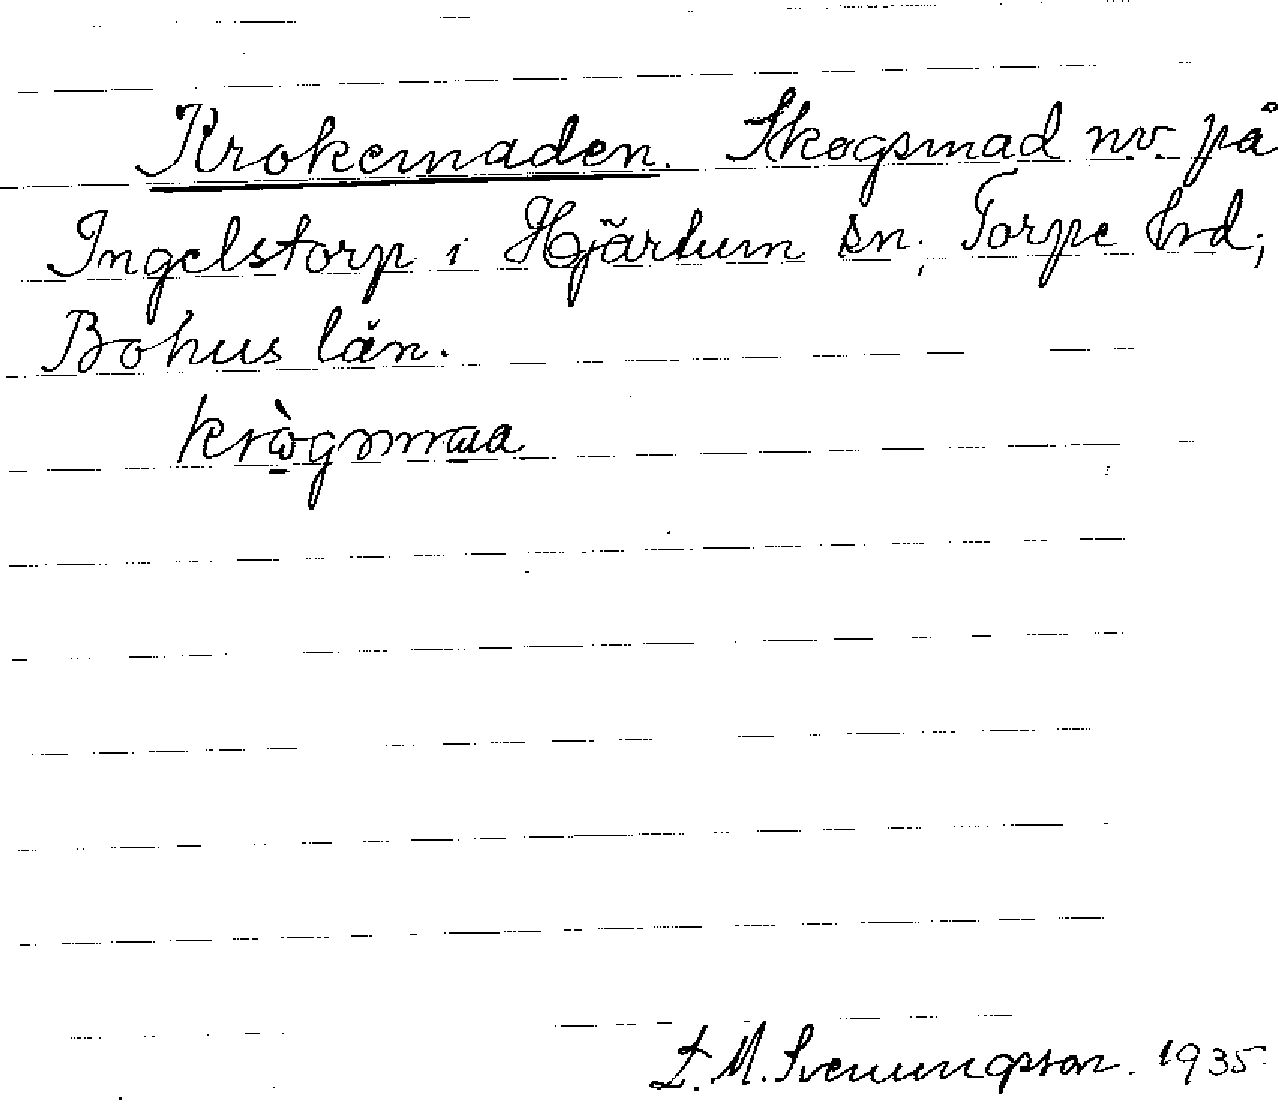 Krokemaden. Skogsmad nv. på
Ingelstorp i Hjärtum sn; Torpe hrd;
Bohus län.
krògmmaa
L. M. Svenungsson. 1935